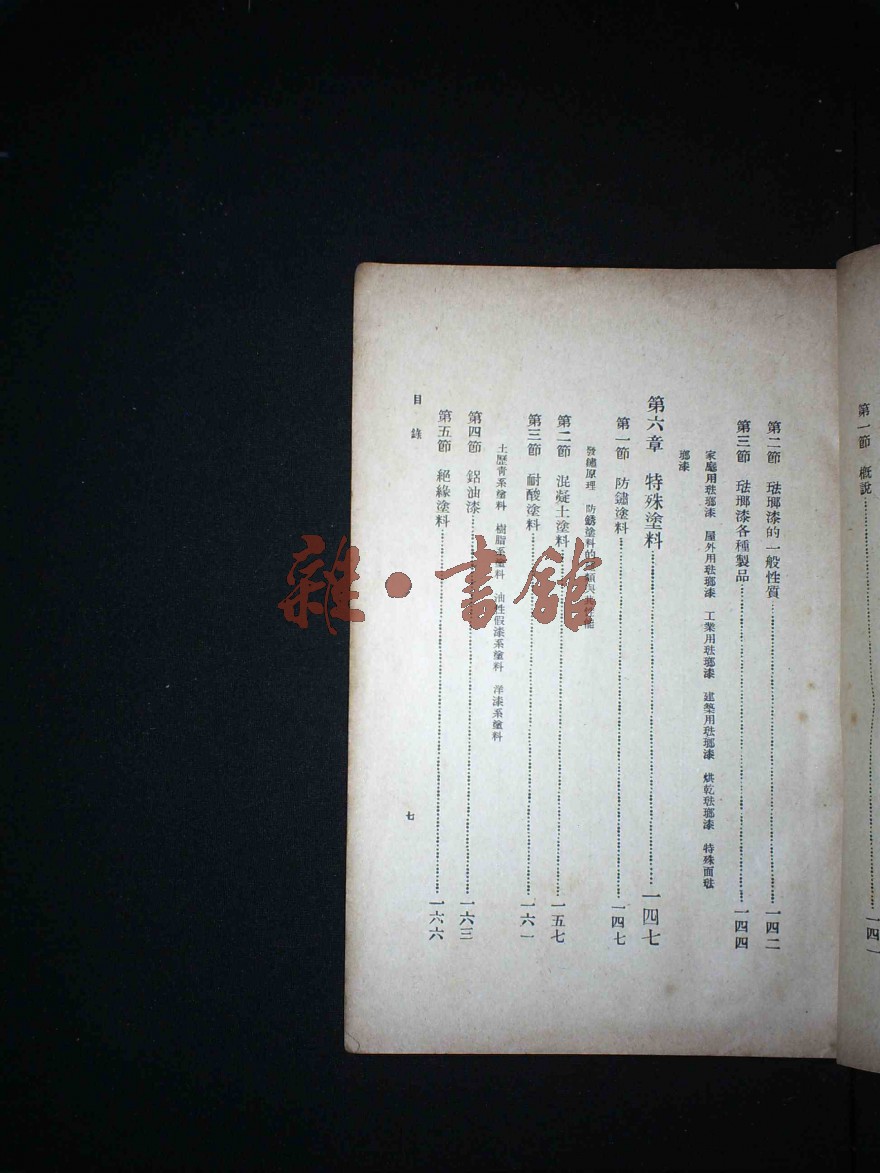 第一節　概說……一四一
第二節　琺瑯漆的一般性質……一四二
第三節　琺瑯漆各種製品……一四四
家庭用琺瑯漆　屋外用琺瑯漆　工業用琺瑯漆　建築用琺瑯漆　烘乾琺瑯漆　特殊面琺
瑯漆
第六章　特殊塗料……一四七
第一節　防鏽塗料……一四七
發鏽原理　防銹塗料的
第二節　混凝土塗料……一五七
第三節　耐酸塗料……一六一
土瀝青系塗料　樹脂系塗料　油性假漆系塗料　洋漆系塗料
第四節　鋁油漆……一六三
第五節　絕緣塗料……一六六
目錄
七
雜·書館